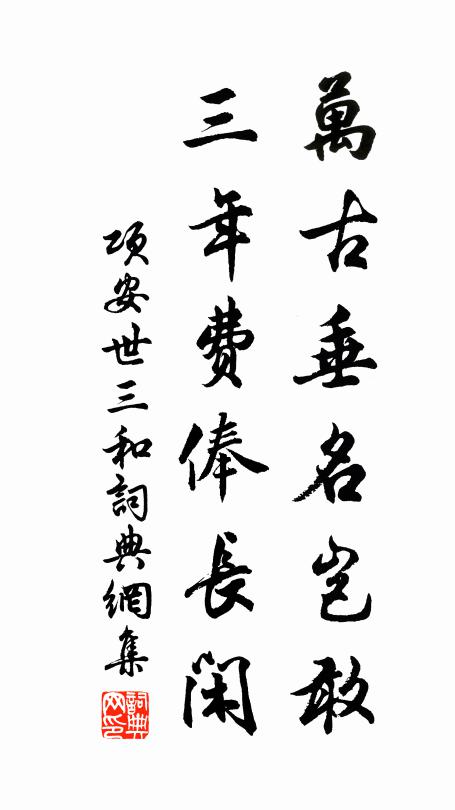 萬古垂名豈敢
三年費俸長閑
項安世三和詞典網集
詞典網印